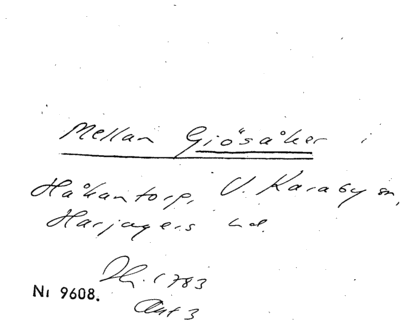 Mellan Giösåker i
Håkantorp, V. Karaby sn,
Harjagers hd.
Sk. 1783
Akt 3
Nı 9608.